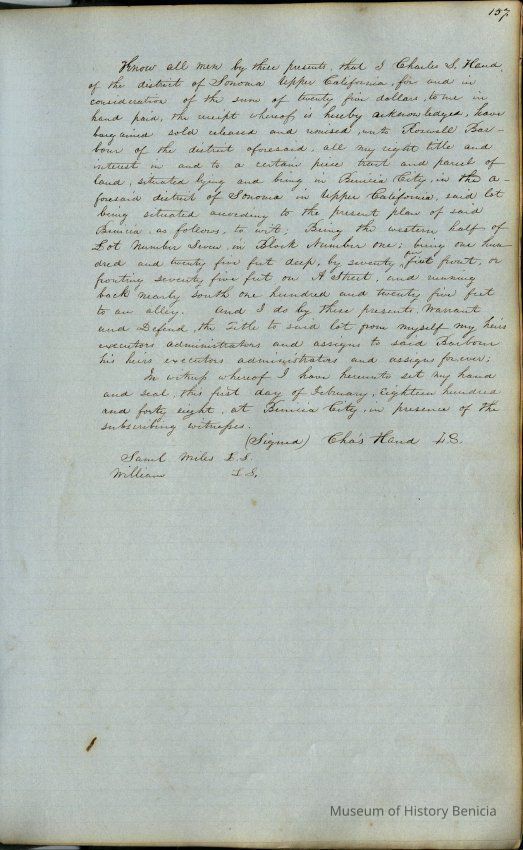 157
Know all men by these presents, that I Charles S. Hand,
of the district of Sonoma Upper California, for and in
consideration of the sum of twenty five dollars, to me in
hand paid, the receipt whereof is hereby acknowledged, have
bargained sold released and remised, unto Roswell Bar-
bour of the district aforesaid, all my right title and
interest in and to a certain piece tract and parcel of
land, situated lying and being in Benicia City, in the a-
foresaid district of Sonoma in Upper California, said lot
being situated according to the present plan of said
Benicia, as follows, to wit; Being the western half of
Lot Number Seven, in Block Number one; being one hun-
dred and twenty five feet deep, by seventy five feet front, or
fronting seventy five feet on A Street, and running
back nearly south one hundred and twenty five feet
to an alley. And I do by these presents, Warrant
and Defend, the Title to said lot from myself my heirs
executors administrators and assigns to said Barbour
his heirs executors administrators and assigns forever;
In witness whereof I have hereunto set my hand
and seal, this first day of February, eighteen hundred
and forty eight, at Benicia City, in presence of the
subscribing witnesses.
(Signed) Cha's Hand L.S.
Saml Miles L.S.
William L.S.
Museum of History Benicia